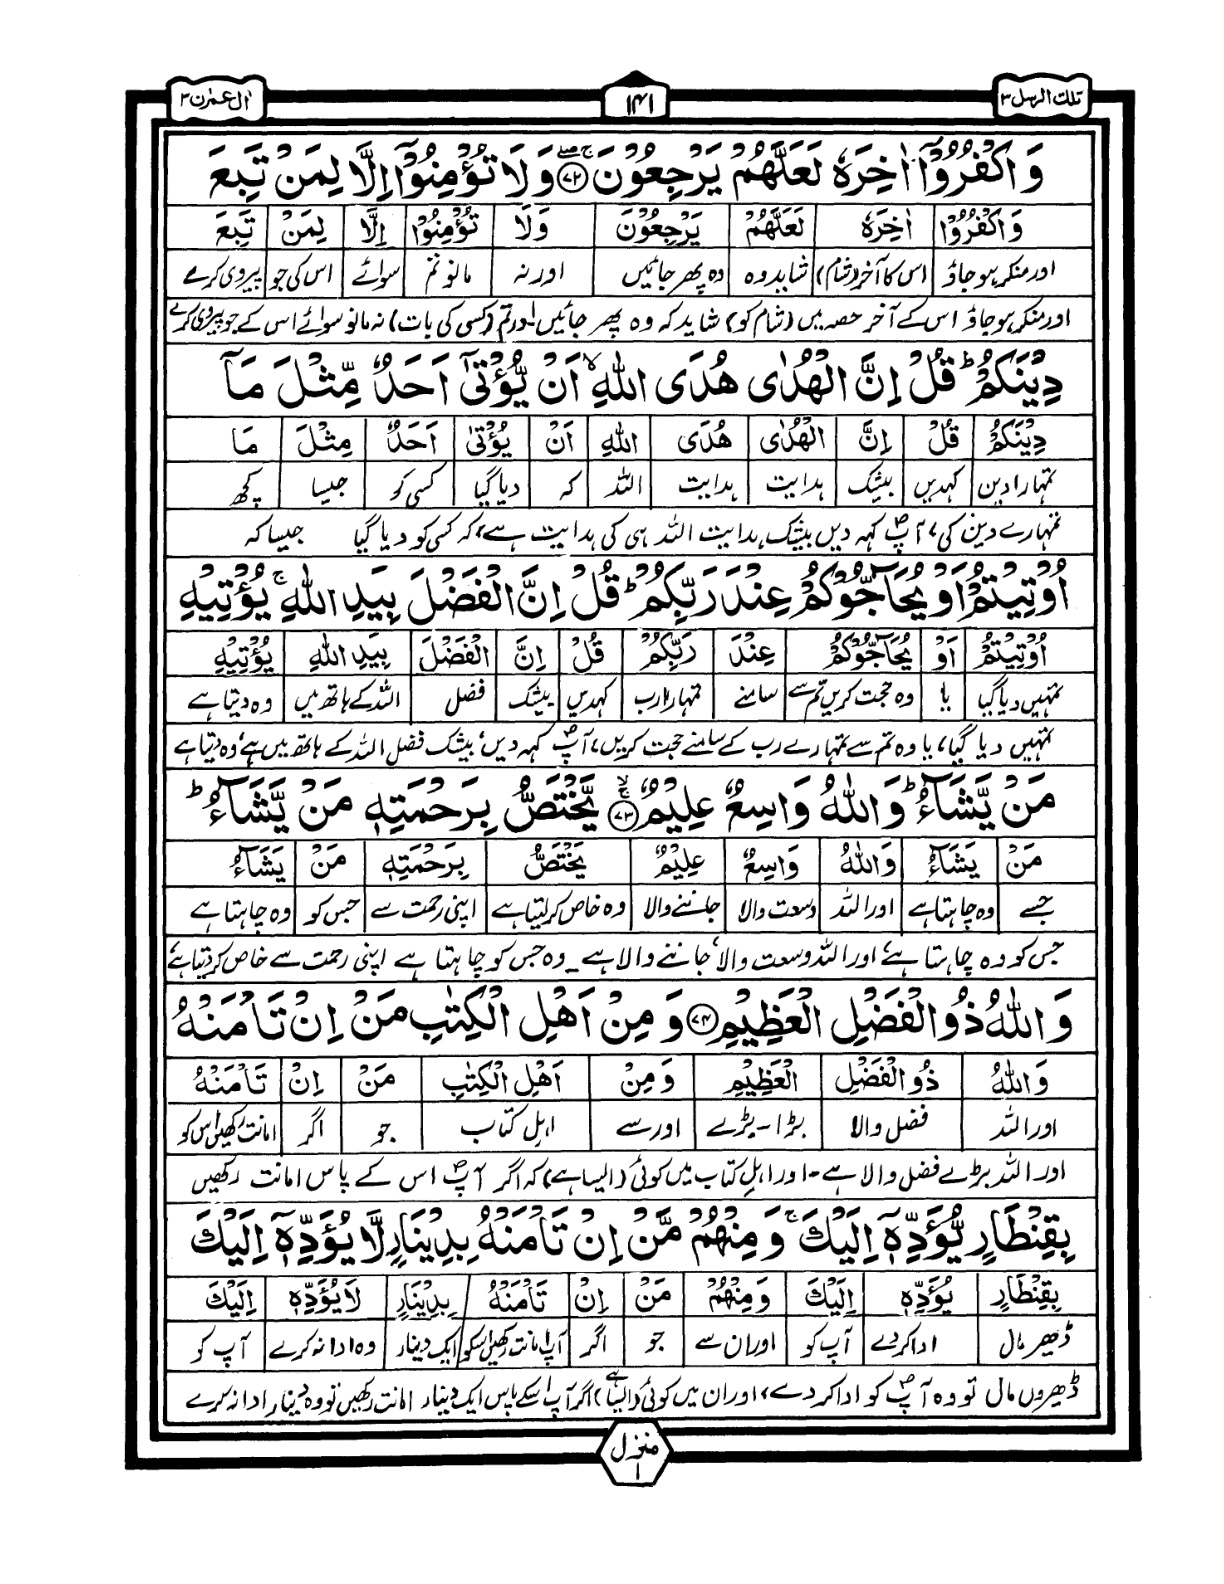 تلك الرسل ۳
۱۴۱
اٰل عمرٰن ۳
وَاكْفُرُوْۤا اٰخِرَهٗ لَعَلَّهُمْ يَرْجِعُوْنَ ۚۖ ﴿۷۲﴾ وَلَا تُؤْمِنُوْۤا اِلَّا لِمَنْ تَبِعَ
وَاكْفُرُوْۤا اٰخِرَهٗ لَعَلَّهُمْ يَرْجِعُوْنَ وَلَا تُؤْمِنُوْۤا اِلَّا لِمَنْ تَبِعَ
اور منکر ہو جاؤ اس کا آخر (شام) شاید وہ وہ پھر جائیں اور نہ مانو تم سوائے اس کی جو پیروی کرے
اور منکر ہو جاؤ اس کے آخر حصہ میں (شام کو) شاید کہ وہ پھر جائیں اور تم (کسی کی بات) نہ مانو سوائے اس کے جو پیروی کرے
دِيْنَكُمْ ؕ قُلْ اِنَّ الْهُدٰى هُدَى اللّٰهِ ۙ اَنْ يُّؤْتٰۤى اَحَدٌ مِّثْلَ مَاۤ
دِيْنَكُمْ قُلْ اِنَّ الْهُدٰى هُدَى اللّٰهِ اَنْ يُؤْتٰۤى اَحَدٌ مِثْلَ مَا
تمہارا دین کہدیں بیشک ہدایت ہدایت اللہ کہ دیا گیا کسی کو جیسا کچھ
تمہارے دین کی، آپؐ کہہ دیں بیشک ہدایت اللہ ہی کی ہدایت ہے، کہ کسی کو دیا گیا جیسا کہ
اُوْتِيْتُمْ اَوْ يُحَآجُّوْكُمْ عِنْدَ رَبِّكُمْ ؕ قُلْ اِنَّ الْفَضْلَ بِيَدِ اللّٰهِ ۚ يُؤْتِيْهِ
اُوْتِيْتُمْ اَوْ يُحَآجُّوْكُمْ عِنْدَ رَبِّكُمْ قُلْ اِنَّ الْفَضْلَ بِيَدِ اللّٰهِ يُؤْتِيْهِ
تمہیں دیا گیا یا وہ حجت کریں تم سے سامنے تمہارا رب کہدیں بیشک فضل اللہ کے ہاتھ میں وہ دیتا ہے
تمہیں دیا گیا، یا وہ تم سے تمہارے رب کے سامنے حجت کریں، آپؐ کہہ دیں، بیشک فضل اللہ کے ہاتھ میں ہے، وہ دیتا ہے
مَنْ يَّشَآءُ ؕ وَاللّٰهُ وَاسِعٌ عَلِيْمٌ ۚۙ ﴿۷۳﴾ يَّخْتَصُّ بِرَحْمَتِهٖ مَنْ يَّشَآءُ ؕ
مَنْ يَشَآءُ وَاللّٰهُ وَاسِعٌ عَلِيْمٌ يَخْتَصُّ بِرَحْمَتِهٖ مَنْ يَشَآءُ
جسے وہ چاہتا ہے اور اللہ وسعت والا جاننے والا وہ خاص کر لیتا ہے اپنی رحمت سے جس کو وہ چاہتا ہے
جس کو وہ چاہتا ہے، اور اللہ وسعت والا، جاننے والا ہے۔ وہ جس کو چاہتا ہے اپنی رحمت سے خاص کر دیتا ہے،
وَاللّٰهُ ذُو الْفَضْلِ الْعَظِيْمِ ﴿۷۴﴾ وَمِنْ اَهْلِ الْكِتٰبِ مَنْ اِنْ تَاْمَنْهُ
وَاللّٰهُ ذُو الْفَضْلِ الْعَظِيْمِ وَمِنْ اَهْلِ الْكِتٰبِ مَنْ اِنْ تَاْمَنْهُ
اور اللہ فضل والا بڑا - بڑے اور سے اہل کتاب جو اگر امانت رکھیں اس کو
اور اللہ بڑے فضل والا ہے۔ اور اہل کتاب میں کوئی (ایسا ہے) کہ اگر آپؐ اس کے پاس امانت رکھیں
بِقِنْطَارٍ يُّؤَدِّهٖۤ اِلَيْكَ ۚ وَمِنْهُمْ مَّنْ اِنْ تَاْمَنْهُ بِدِيْنَارٍ لَّا يُؤَدِّهٖۤ اِلَيْكَ
بِقِنْطَارٍ يُؤَدِّهٖ اِلَيْكَ وَمِنْهُمْ مَنْ اِنْ تَاْمَنْهُ بِدِيْنَارٍ لَا يُؤَدِّهٖۤ اِلَيْكَ
ڈھیر مال ادا کردے آپ کو اور ان سے جو اگر آپ امانت رکھیں اسکو ایک دینار وہ ادا نہ کرے آپ کو
ڈھیروں مال تو وہ آپؐ کو ادا کر دے، اور ان میں کوئی (ایسا ہے) اگر آپ اسکے پاس ایک دینار امانت رکھیں تو وہ دینار ادا نہ کرے
منزل
۱